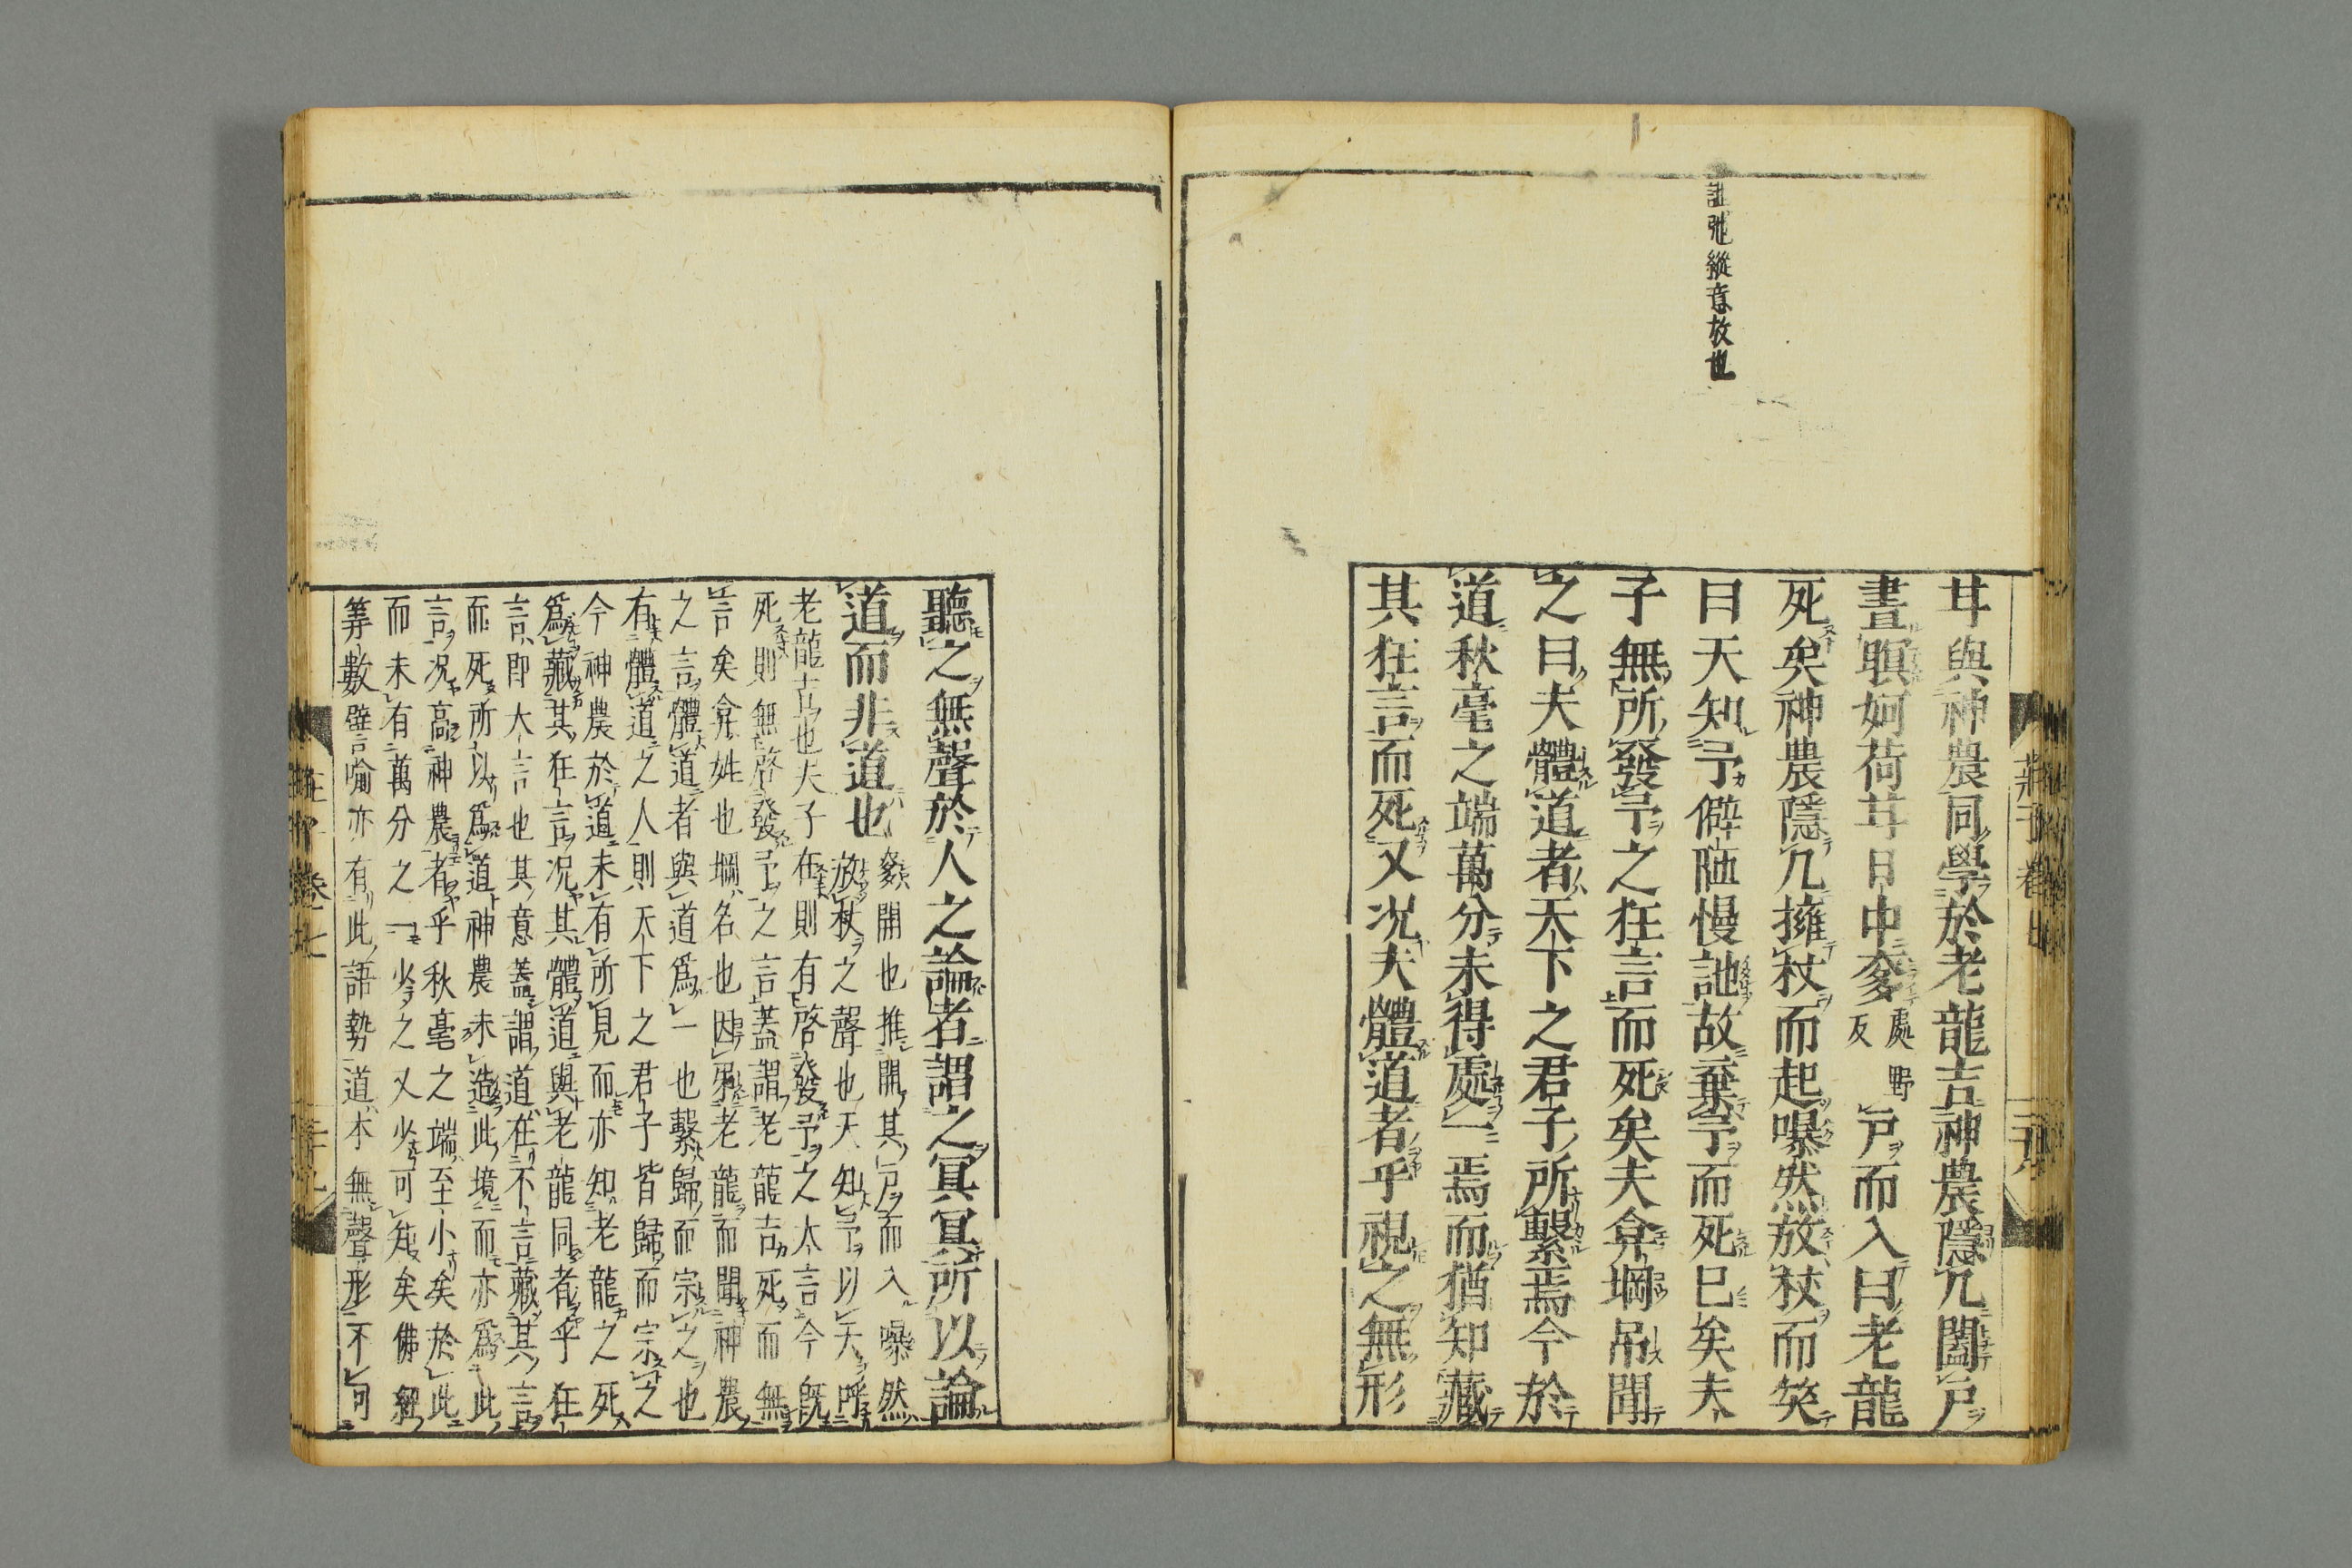 訑弛縱意放也
甘與神農同學於老龍吉神農隱几闔戸
晝瞑妸荷甘日中奓處野反戸而入曰老龍
死矣神農隱几擁杖而起嚗然放杖而笑
曰天知予僻陋慢訑故棄予而死已矣夫
子無所發予之狂言而死矣夫弇堈吊聞
之曰夫體道者天下之君子所繫焉今於
道秋毫之端萬分未得處一焉而猶知藏
其狂言而死又况夫體道者乎視之無形
聽之無聲於人之論者謂之冥冥所以論
道而非道也奓開也推開其戸而入嚗然
放杖之聲也天知予以天呼
老龍吉也夫子在則有啓發予之大言今既
死則無啓發予之言蓋謂老龍吉死而無
言矣弇姓也堈名也因弔老龍而聞神農
之言體道者與道爲一也繫歸而宗之也
有體道之人則天下之君子皆歸而宗之
今神農於道未有所見而亦知老龍之死
爲藏其狂言况其體道與老龍同者乎狂
言即大言也其意蓋謂道在不言藏其言
而死所以爲道神農未造此境而亦爲此
言况高神農者乎秋毫之端至小矣於此
而未有萬分之一少之又少可知矣佛經
筭數譬喻亦有此語勢道本無聲形不可